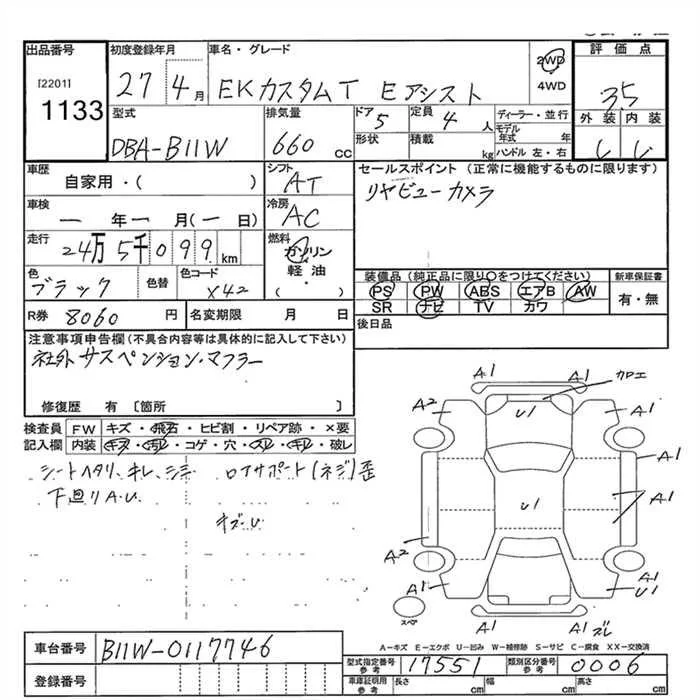 出品番号
[2201]
1133
初度登録年月
27 4月
車名・グレード
EKカスタムT Eアシスト
2WD
4WD
評価点
3.5
外装 内装
型式
DBA-B11W
排気量
660 cc
ドア
5
定員
4 人
形状
積載
kg
ディーラー・並行
モデル年式 年
ハンドル 左・右
車歴
自家用・( )
シフト
AT
セールスポイント (正常に機能するものに限ります)
リヤビューカメラ
車検
一 年 一 月 (一 日)
冷房
AC
走行
24万5千099 km
燃料
ガソリン
軽油
( )
色
ブラック
色替
色コード
X42
装備品 (純正品に限り○をつけてください)
PS PW ABS エアB AW
SR ナビ TV カワ
新車保証書
有・無
R券 8060 円
名変期限 月 日
後日品
注意事項申告欄 (不具合内容等は具体的に記入して下さい)
社外サスペンション・マフラー
修復歴 有 [箇所 ]
検査員記入欄
FW キズ・飛石・ヒビ割・リペア跡・×要
内装 キズ・汚れ・コゲ・穴・スレ・キレ・破レ
シートヘタリ、キレ、シミ
下廻りA.U.
ロアサポート(ネジ)歪
キズ・U
A1 A1 カロエ
A2 U1 A1
A1
U1 A1
A2
A1 A1
U1
A1 A1 ズレ
スペア
A－キズ E－エクボ U－凹み W－補修跡 S－サビ C－腐食 XX－交換済
車台番号 B11W-0117746
登録番号
型式指定番号 参考 17551
類別区分番号 参考 0006
車庫証明用 参考 長さ cm 幅 cm 高さ cm